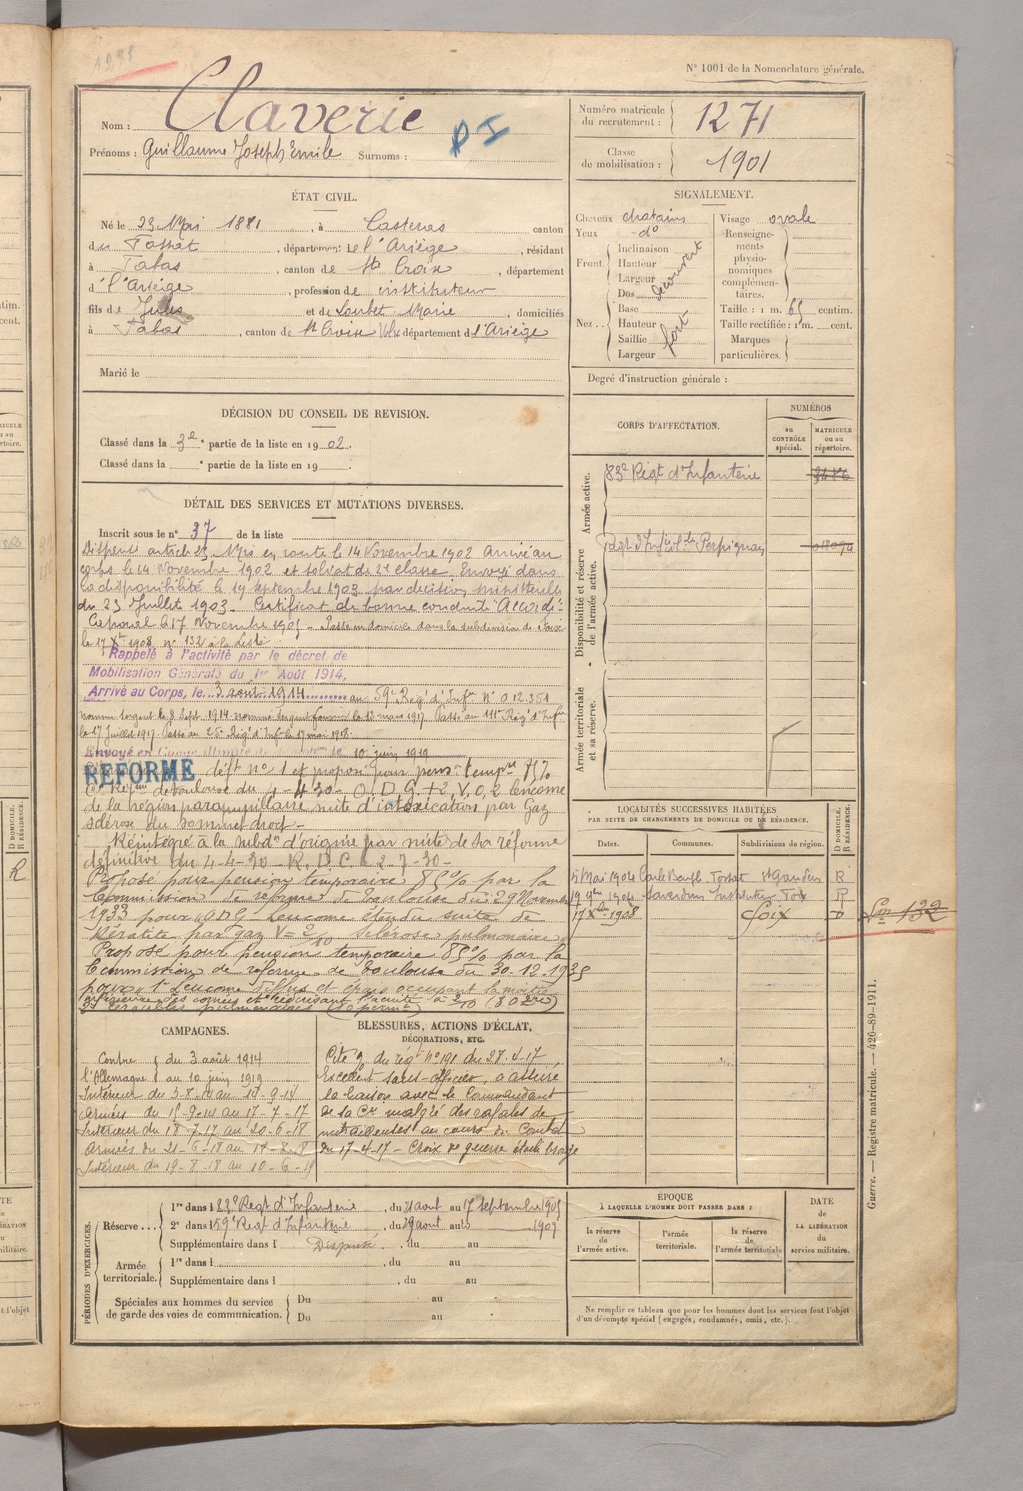 N° 1001 de la Nomenclature générale.
Nom : Claverie
Prénoms : Guillaume Joseph Emile Surnoms :
Numéro matricule du recrutement : 1271
Classe de mobilisation : 1901
ÉTAT CIVIL.
Né le 23 Mai 1881, à Casteras canton
du Fossat, département de l'Ariège, résidant
à , canton de Ste Croix, département
d'l'Ariège, profession de instituteur
fils de Jules et de Loubet Marie, domiciliés
à , canton de St Croix Volv. département d l'Ariège
Marié le
SIGNALEMENT.
Cheveux chatains
Yeux d°
Front Inclinaison Hauteur Largeur découvert
Nez Dos Base Hauteur Saillie Largeur fort
Visage ovale
Renseignements physionomiques complémentaires.
Taille : 1 m. 65 centim.
Taille rectifiée : 1 m. cent.
Marques particulières.
Degré d'instruction générale :
DÉCISION DU CONSEIL DE REVISION.
Classé dans la 3e partie de la liste en 1902.
Classé dans la partie de la liste en 19
DÉTAIL DES SERVICES ET MUTATIONS DIVERSES.
Inscrit sous le n° 37 de la liste
Dispensé article 23. Mis en route le 14 Novembre 1902 Arrivé au
corps le 14 Novembre 1902 et soldat de 2e classe. Envoyé dans
la disponibilité le 19 septembre 1903 par décision ministérielle
du 23 Juillet 1903. Certificat de bonne conduite "Accordé"
Caporal le 17 Novembre 1905 - Passe en domicile dans la subdivision de Foix
le 17 Xbre 1908 n° 132 à la liste
Rappelé à l'activité par le décret de
Mobilisation Générale du 1er Août 1914,
Arrivé au Corps, le 3 août 1914 au 59e Rég' d'Infie N° 012.351
Nommé sergent le 8 Sept 1914 nommé sergent fourrier le 13 mars 1917. Passé au 111e Rég' d'Infie
le 17 Juillet 1917 Passé au Rég' d'Inf le 17 mai 1918.
Envoyé en le 10 juin 1919
RÉFORMÉ déft n° 1 et proposé pour pens° tempre 75%
C. Réfme de Toulouse du 4-4-30 - O.D.G. +2 V.O,2 leucome
de la région parapupillaire suite d'intoxication par Gaz
sclérose du sommet droit -
Réintégré à la subd°n d'origine par suite de sa réforme
définitive du 4-4-30 - R.D.C. le 2-7-30 -
Proposé pour pension temporaire 85% par la
Commission de réforme de Toulouse du 29 Novembre
1933 pour O.D.G. Leucome étendu suite de
Kératite par Gaz V= sclérose pulmonaire
Proposé pour pension temporaire 85% par la
Commission de réforme de Toulouse du 30.12.1935
pour 1° Leucome diffus et épais occupant la moitié
inférieure des cornées et réduisant l'acuité à
CORPS D'AFFECTATION.
NUMÉROS
au CONTRÔLE spécial.
MATRICULE ou au répertoire.
Armée active.
83e Régt d'Infanterie
Disponibilité et réserve de l'armée active.
Régt d'Inf de Perpignan
Armée territoriale et sa réserve.
LOCALITÉS SUCCESSIVES HABITÉES
PAR SUITE DE CHANGEMENTS DE DOMICILE OU DE RÉSIDENCE.
D DOMICILE. R RÉSIDENCE.
Dates. Communes. Subdivisions de région.
5 Mai 1904 St Gaudens R
17 9bre 1904 Saverdun Instituteur Foix R
17 Xbre 1908 Foix D
132
CAMPAGNES.
Contre du 3 août 1914
l'Allemagne au 10 juin 1919
Intérieur du 3-8-14 au 14-9-14
Armées du 15-9-14 au 17-7-17
Intérieur du 18-7-17 au 20-6-18
Armées du 21-6-18 au 18-8-18
Intérieur du 19-8-18 au 10-6-19
BLESSURES, ACTIONS D'ÉCLAT,
DÉCORATIONS, ETC.
Cité O/ du régt n°191 du 28-4-17
Excellent sous-officier, a assuré
la liaison avec le Commandant
de sa Cie malgré des rafales de
mitrailleuses au cours du Combat
du 17-4-17 - Croix de guerre étoile bronze
PÉRIODES D'EXERCICES.
Réserve... 1re dans l 83e Régt d'Infanterie, du 21 août au 17 septembre 1905
2e dans l 59e Régt d'Infanterie, du août au 1909
Supplémentaire dans l Dispensé, du au
Armée territoriale. 1re dans l, du au
Supplémentaire dans l, du au
Spéciales aux hommes du service de garde des voies de communication. Du au
Du au
ÉPOQUE
À LAQUELLE L'HOMME DOIT PASSER DANS :
la réserve de l'armée active.
l'armée territoriale.
la réserve de l'armée territoriale
DATE de LA LIBÉRATION du service militaire.
Ne remplir ce tableau que pour les hommes dont les services font l'objet
d'un décompte spécial (engagés, condamnés, omis, etc.).
Guerre. — Registre matricule. — 426-89-1911.